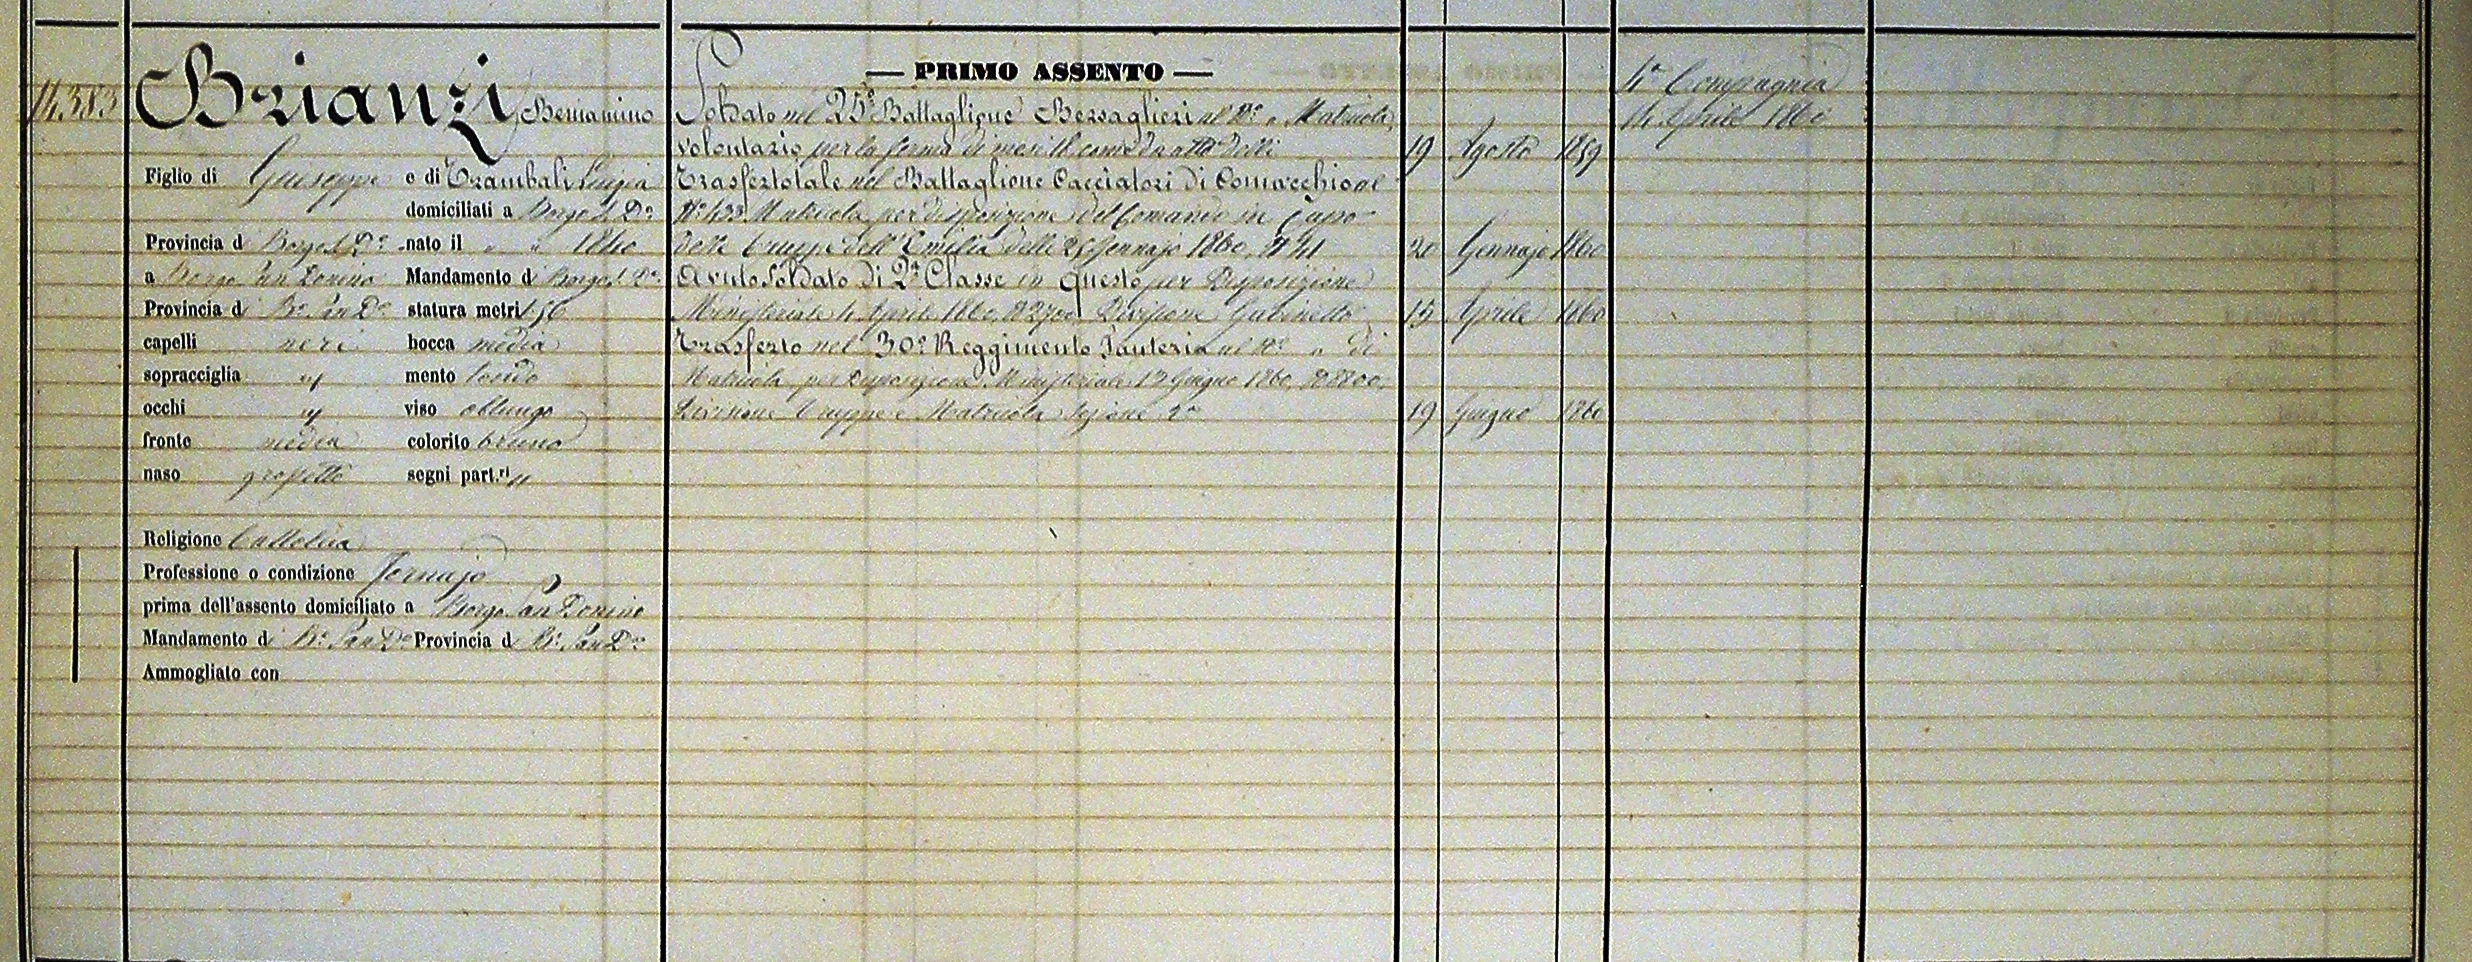 14383
Brianzi Beniamino
Figlio di Giuseppe e di Trambali Luigia
domiciliati a Borgo S. Do.
Provincia di Borgo S. Do. nato il " " 1840
a Borgo San Donino Mandamento di Borgo S. Do.
Provincia di Bo. San Do. statura metri 1.56
capelli neri bocca media
sopracciglia id mento tondo
occhi id viso oblungo
fronte media colorito bruno
naso grossetto segni part.ri "
Religione Cattolica
Professione o condizione Fornajo
prima dell'assento domiciliato a Borgo San Donino
Mandamento di Bo. San Do. Provincia di Bo. San Do.
Ammogliato con
— PRIMO ASSENTO —
Soldato nel 25o Battaglione Bersaglieri al No. " Matricola,
volontario per la ferma di mesi 18 come da atto delli 19 Agosto 1859
Trasferto tale nel Battaglione Cacciatori di Comacchio al
No. 433 Matricola per disposizione del Comando in Capo
delle truppe dell'Emilia delli 25 Gennajo 1860, No. 41 20 Gennajo 1860
Avuto Soldato di 2a Classe in Questo per Disposizione
Ministeriale 4 Aprile 1860, No. 2700, Divisione Gabinetto 15 Aprile 1860
Trasferto nel 30o Reggimento Fanteria al No. " di
Matricola per Disposizione Ministeriale 12 Giugno 1860, No. 8800,
Divisione Truppe e Matricola Sezione 2a 19 Giugno 1860
4a Compagnia
14 Aprile 1860